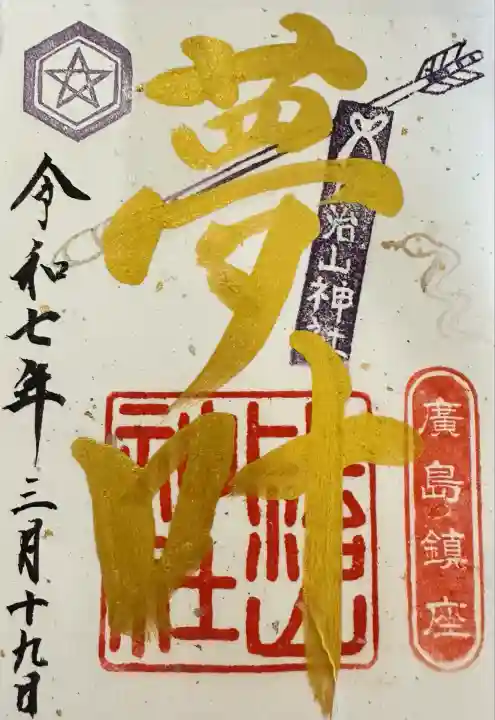 廣島鎮座
治山神社
夢叶
比治山
神社
令和七年三月十九日